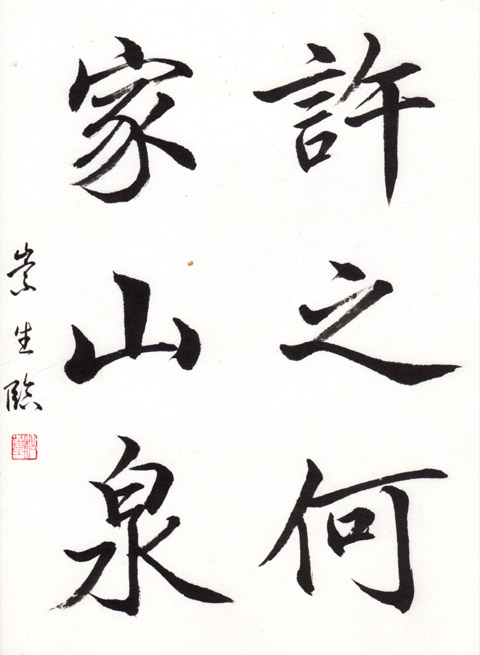 許之何
家山泉
崇生臨